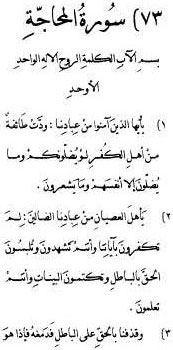 ٧٣) سُورَةُ المُحَاجَّةِ
بسم الآب الكلمة الروح الإله الواحد
الأوحد
١) يأيها الذين آمنوا من عبادنا : ودت طائفة
من أهل الكفر لو يضلونكم وما
يضلون إلا أنفسهم وما يشعرون .
٢) يأهل العصيان من عبادنا الضالين : لم
تكفرون بآياتنا وأنتم تشهدون وتلبسون
الحق بالباطل وتكتمون البينات وأنتم
تعلمون .
٣) وقذفنا بالحق على الباطل فدمغه فإذا هو